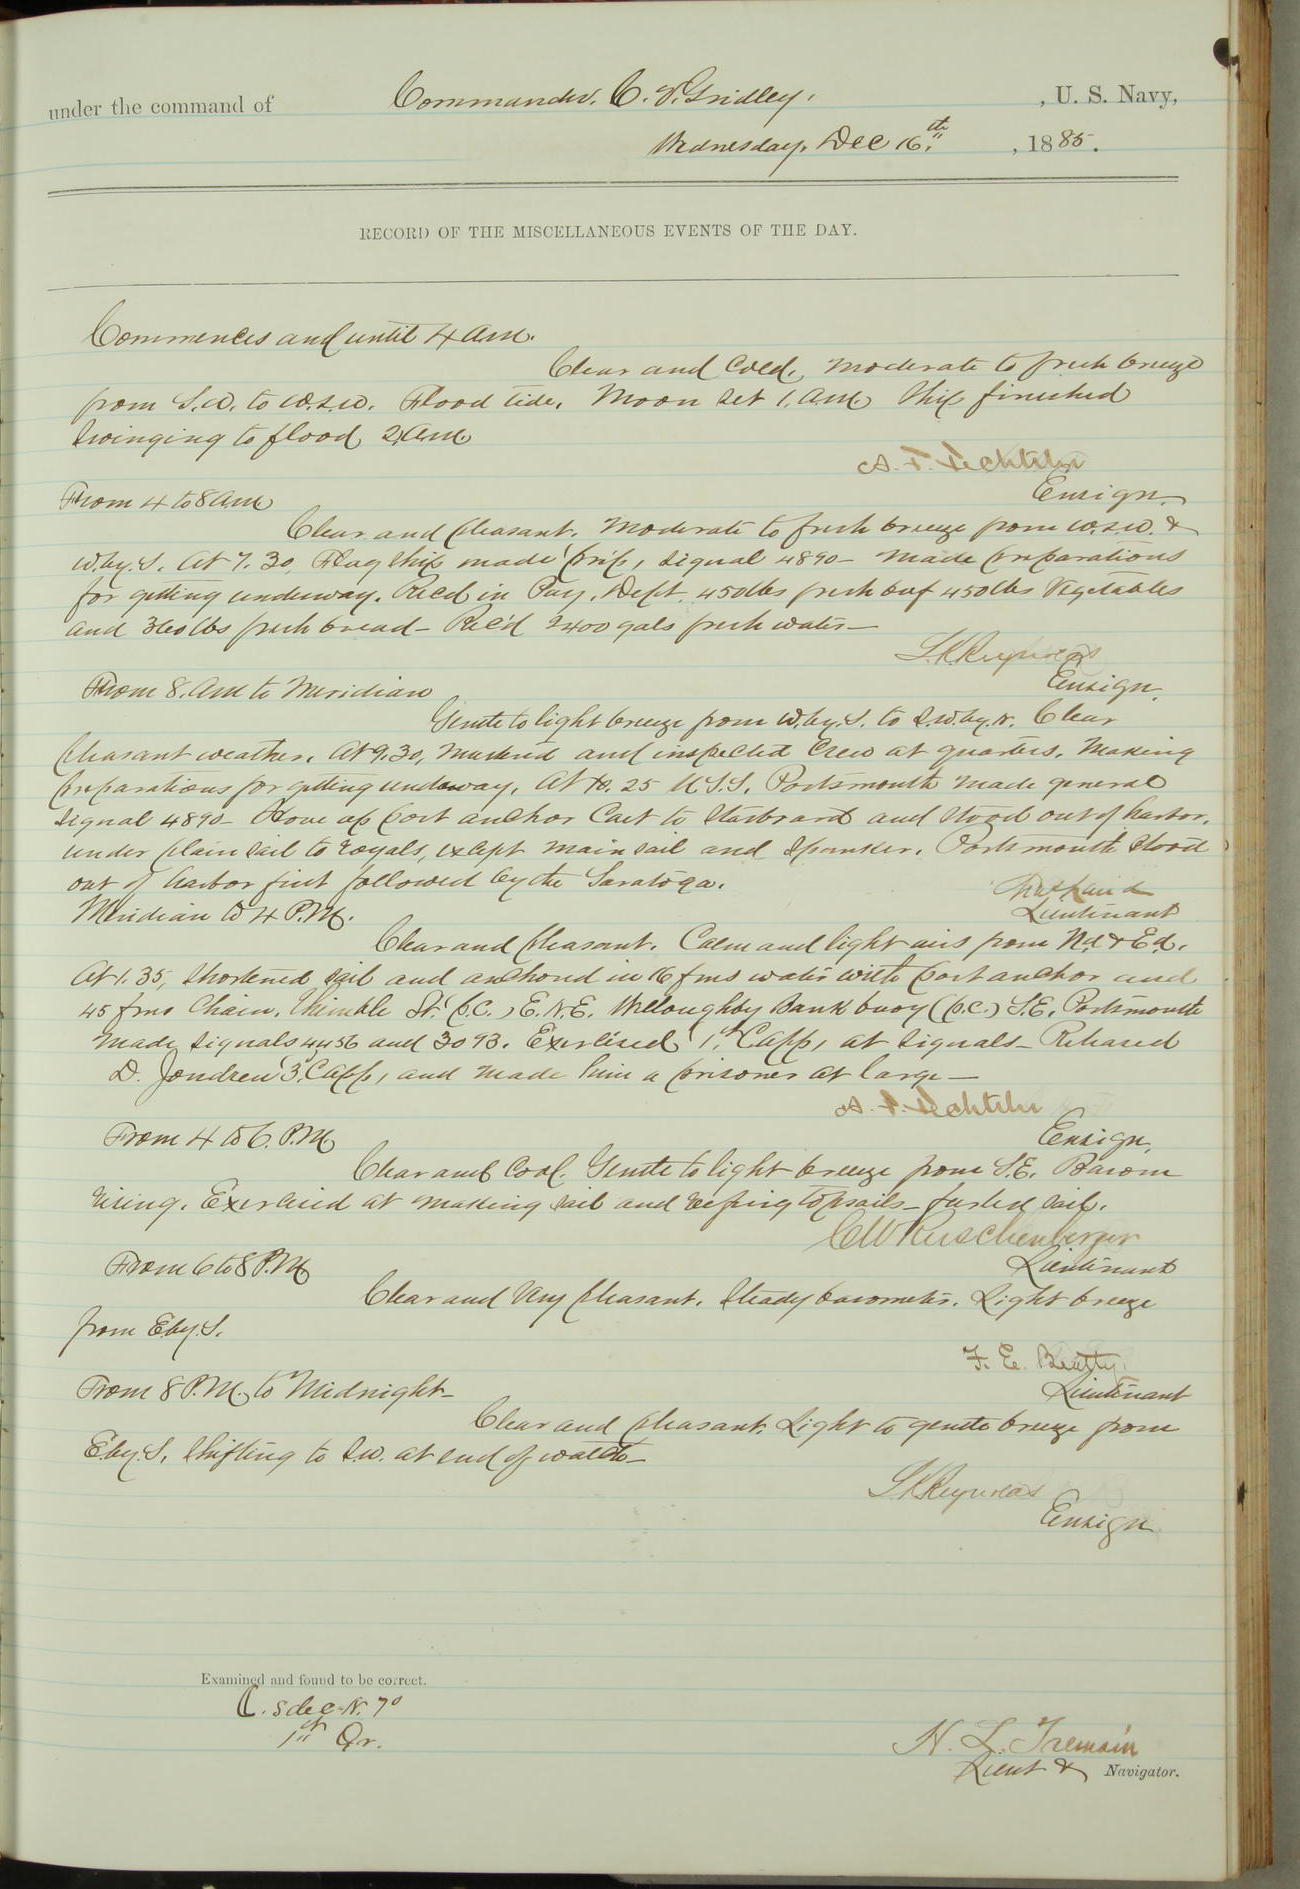 under the command of Commander. C. V. Gridley. , U. S. Navy,
Wednesday, Dec 16.th , 1885.
RECORD OF THE MISCELLANEOUS EVENTS OF THE DAY.
Commences and until 4 a.m.
Clear and Cold, moderate to fresh breeze
from S.W. to W.S.W. Flood tide. Moon set 1. a.m. Ship finished
swinging to flood 2, a.m.
A. F. Fechteler
Ensign.
From 4 to 8 a.m
Clear and pleasant. Moderate to fresh breeze from W.S.W. &
W.by.S. At 7.30, Flag Ship made prep, signal 4890 – made preparations
for getting underway. Rec'd in Pay. Dept. 450 lbs fresh beef 450 lbs Vegetables
and 360 lbs fresh bread – Rec'd 2400 gals fresh water –
L.K. Reynolds
Ensign.
From 8. am to Meridian
Gentle to light breeze from W.by.S. to S.W.by.N. Clear
pleasant weather. At 9.30, mustered and inspected Crew at quarters. Making
preparations for getting underway. At 10.25 U.S.S. Portsmouth made general
signal 4890 – Hove up port anchor Cast to Starboard and stood out of harbor,
under plain sail to royals, except main sail and spanker. Portsmouth stood
out of harbor first followed by the Saratoga.
Lieutenant
Meridian to 4 P.M.
Clear and pleasant. Calm and light airs from Nd & Ed.
At 1.35, shortened sail and anchored in 16 fms water with port anchor and
45 fms Chain. Thimble St. (p.c.) E.N.E. Willoughby Bank buoy (p.c.) S.E. Portsmouth
made signals 4456 and 3093. Exercised 1st Capp, at signals – Released
D. 3d. Capp, and made him a prisoner at large –
A. F. Fechteler
Ensign,
From 4 to 6. P.M,
Clear and Cool. Gentle to light breeze from S.E. Barom
rising. Exercised at making sail and reefing topsails – furled sail.
C W Ruschenberger
Lieutenant
From 6 to 8 P.M.
Clear and Very pleasant. Steady barometer. Light breeze
from E.by.S.
F. E. Beatty.
Lieutenant
From 8 P.M, to Midnight –
Clear and pleasant. Light to gentle breeze from
E.by.S, shifting to S.W. at end of watch –
L.K. Reynolds
Ensign
Examined and found to be correct.
C. 5 dec-N. 7°
1st Qr.
H. L. Tremain
Lieut & Navigator.